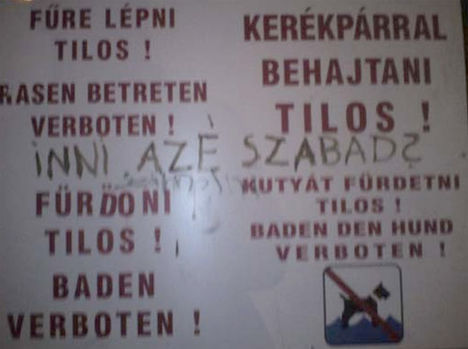 FŰRE LÉPNI
TILOS !
RASEN BETRETEN
VERBOTEN !
KERÉKPÁRRAL
BEHAJTANI
TILOS !
INNI AZÉ SZABAD?
FÜRDŐNI
TILOS !
BADEN
VERBOTEN !
KUTYÁT FÜRDETNI
TILOS !
BADEN DEN HUND
VERBOTEN !